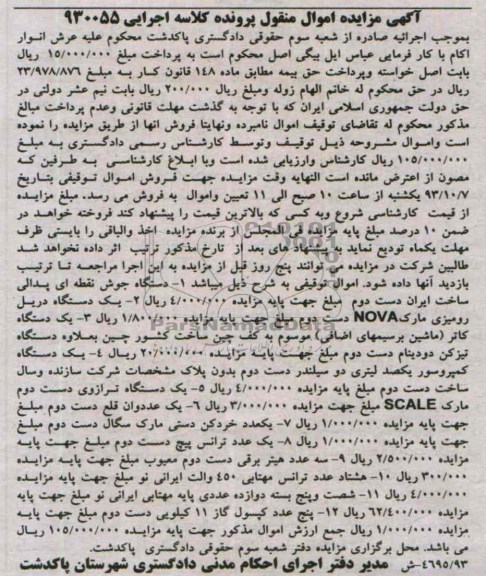 آگهی مزایده اموال منقول پرونده کلاسه اجرایی ۹۳۰۰۵۵
بموجب اجرائیه صادره از شعبه سوم حقوقی دادگستری پاکدشت محکوم علیه عرش انوار
اکام با کار فرمایی عباس ایل بیگی اصل محکوم است به پرداخت مبلغ ۱۵/۰۰۰/۰۰۰ ریال
بابت اصل خواسته وپرداخت حق بیمه مطابق ماده ۱۴۸ قانون کار به مبلغ ۲۳/۹۷۸/۸۷۶
ریال در حق محکوم له خانم الهام زوله ومبلغ ریال ۲۰۰/۰۰۰ ریال بابت نیم عشر دولتی در
حق دولت جمهوری اسلامی ایران که با توجه به گذشت مهلت قانونی وعدم پرداخت مبالغ
مذکور محکوم له تقاضای توقیف اموال نامبرده ونهایتا فروش انها از طریق مزایده را نموده
است واموال مشروحه ذیل توقیف وتوسط کارشناس رسمی دادگستری به مبلغ
۱۰۵/۰۰۰/۰۰۰ ریال کارشناس وارزیابی شده است وبا ابلاغ کارشناسی به طرفین که
مصون از اعترض مانده است النهایه وقت مزایده جهت فروش اموال توقیفی بتاریخ
۹۳/۱۰/۷ یکشنبه از ساعت ۱۰ صبح الی ۱۱ تعیین واموال به فروش می رسد. مبلغ مزایده
از قیمت کارشناسی شروع وبه کسی که بالاترین قیمت را پیشنهاد کند فروخته خواهد در
ضمن ۱۰ درصد مبلغ پایه مزایده فی المجلس از برنده مزایده اخذ والباقی را بایستی ظرف
مهلت یکماه تودیع نماید به پیشنهاد های بعد از تارخ مذکور ترتیب اثر داده نخواهد شد
طالبین شرکت در مزایده می توانند پنج روز قبل از مزایده به این اجرا مراجعه تا ترتیب
بازدید آنها داده شود. اموال توقیفی به شرح ذیل میباشد ۱- دستگاه جوش نقطه ای پدالی
ساخت ایران دست دوم مبلغ جهت پایه مزایده ۴/۰۰۰/۰۰۰ ریال ۲- یک دستگاه دریل
رومیزی مارک NOVA دست دوم مبلغ جهت پایه مزایده ۱/۸۰۰/۰۰۰ ریال ۳- یک دستگاه
کاتر (ماشین برسیمهای اضافی) موسوم به کف چین ساخت کشور چین بعلاوه دستگاه
تیزکن دودینام دست دوم مبلغ جهت پایه مزایده ۲۰/۰۰۰/۰۰۰ ریال ۴- یک دستگاه
کمپروسور یکصد لیتری دو سیلندر دست دوم بدون پلاک مشخصات شرکت سازنده وسال
ساخت دست دوم مبلغ پایه مزایده ۴/۰۰۰/۰۰۰ ریال ۵- یک دستگاه ترازوی دست دوم
مارک SCALE مبلغ جهت مزایده ۳/۰۰۰/۰۰۰ ریال ۶- یک عددوان قلع دست دوم مبلغ
جهت پایه مزایده ۱/۰۰۰/۰۰۰ ریال ۷- یکعدد خردکن دستی مارک سگال دست دوم مبلغ
جهت پایه مزایده ۱/۰۰۰/۰۰۰ ریال ۸- یک عدد ترانس پیچ دست دوم مبلغ جهت پایه
مزایده ۲/۵۰۰/۰۰۰ ریال ۹- سه عدد هیتر برقی دست دوم معیوب مبلغ جهت پایه مزایده
۳۰۰/۰۰۰ ریال ۱۰- هشتاد عدد ترانس مهتابی ۴۵۰ والت ایرانی نو مبلغ جهت پایه مزایده
۴/۰۰۰/۰۰۰ ریال ۱۱- شصت وپنج بسته دوازده عددی پایه مهتابی ایرانی نو مبلغ جهت پایه
مزایده ۶۲/۴۰۰/۰۰۰ ریال ۱۲- پنج عدد کپسول گاز ۱۱ کیلویی دست دوم مبلغ جهت پایه
مزایده ۱/۰۰۰/۰۰۰ ریال جمع ارزش اموال مذکور جهت پایه مزایده ۱۰۵/۰۰۰/۰۰۰ ریال
می باشد. محل برگزاری مزایده دفتر شعبه سوم حقوقی دادگستری پاکدشت.
۴۶۹۵/۹۳-ش مدیر دفتر اجرای احکام مدنی دادگستری شهرستان پاکدشت
ParsNamadData